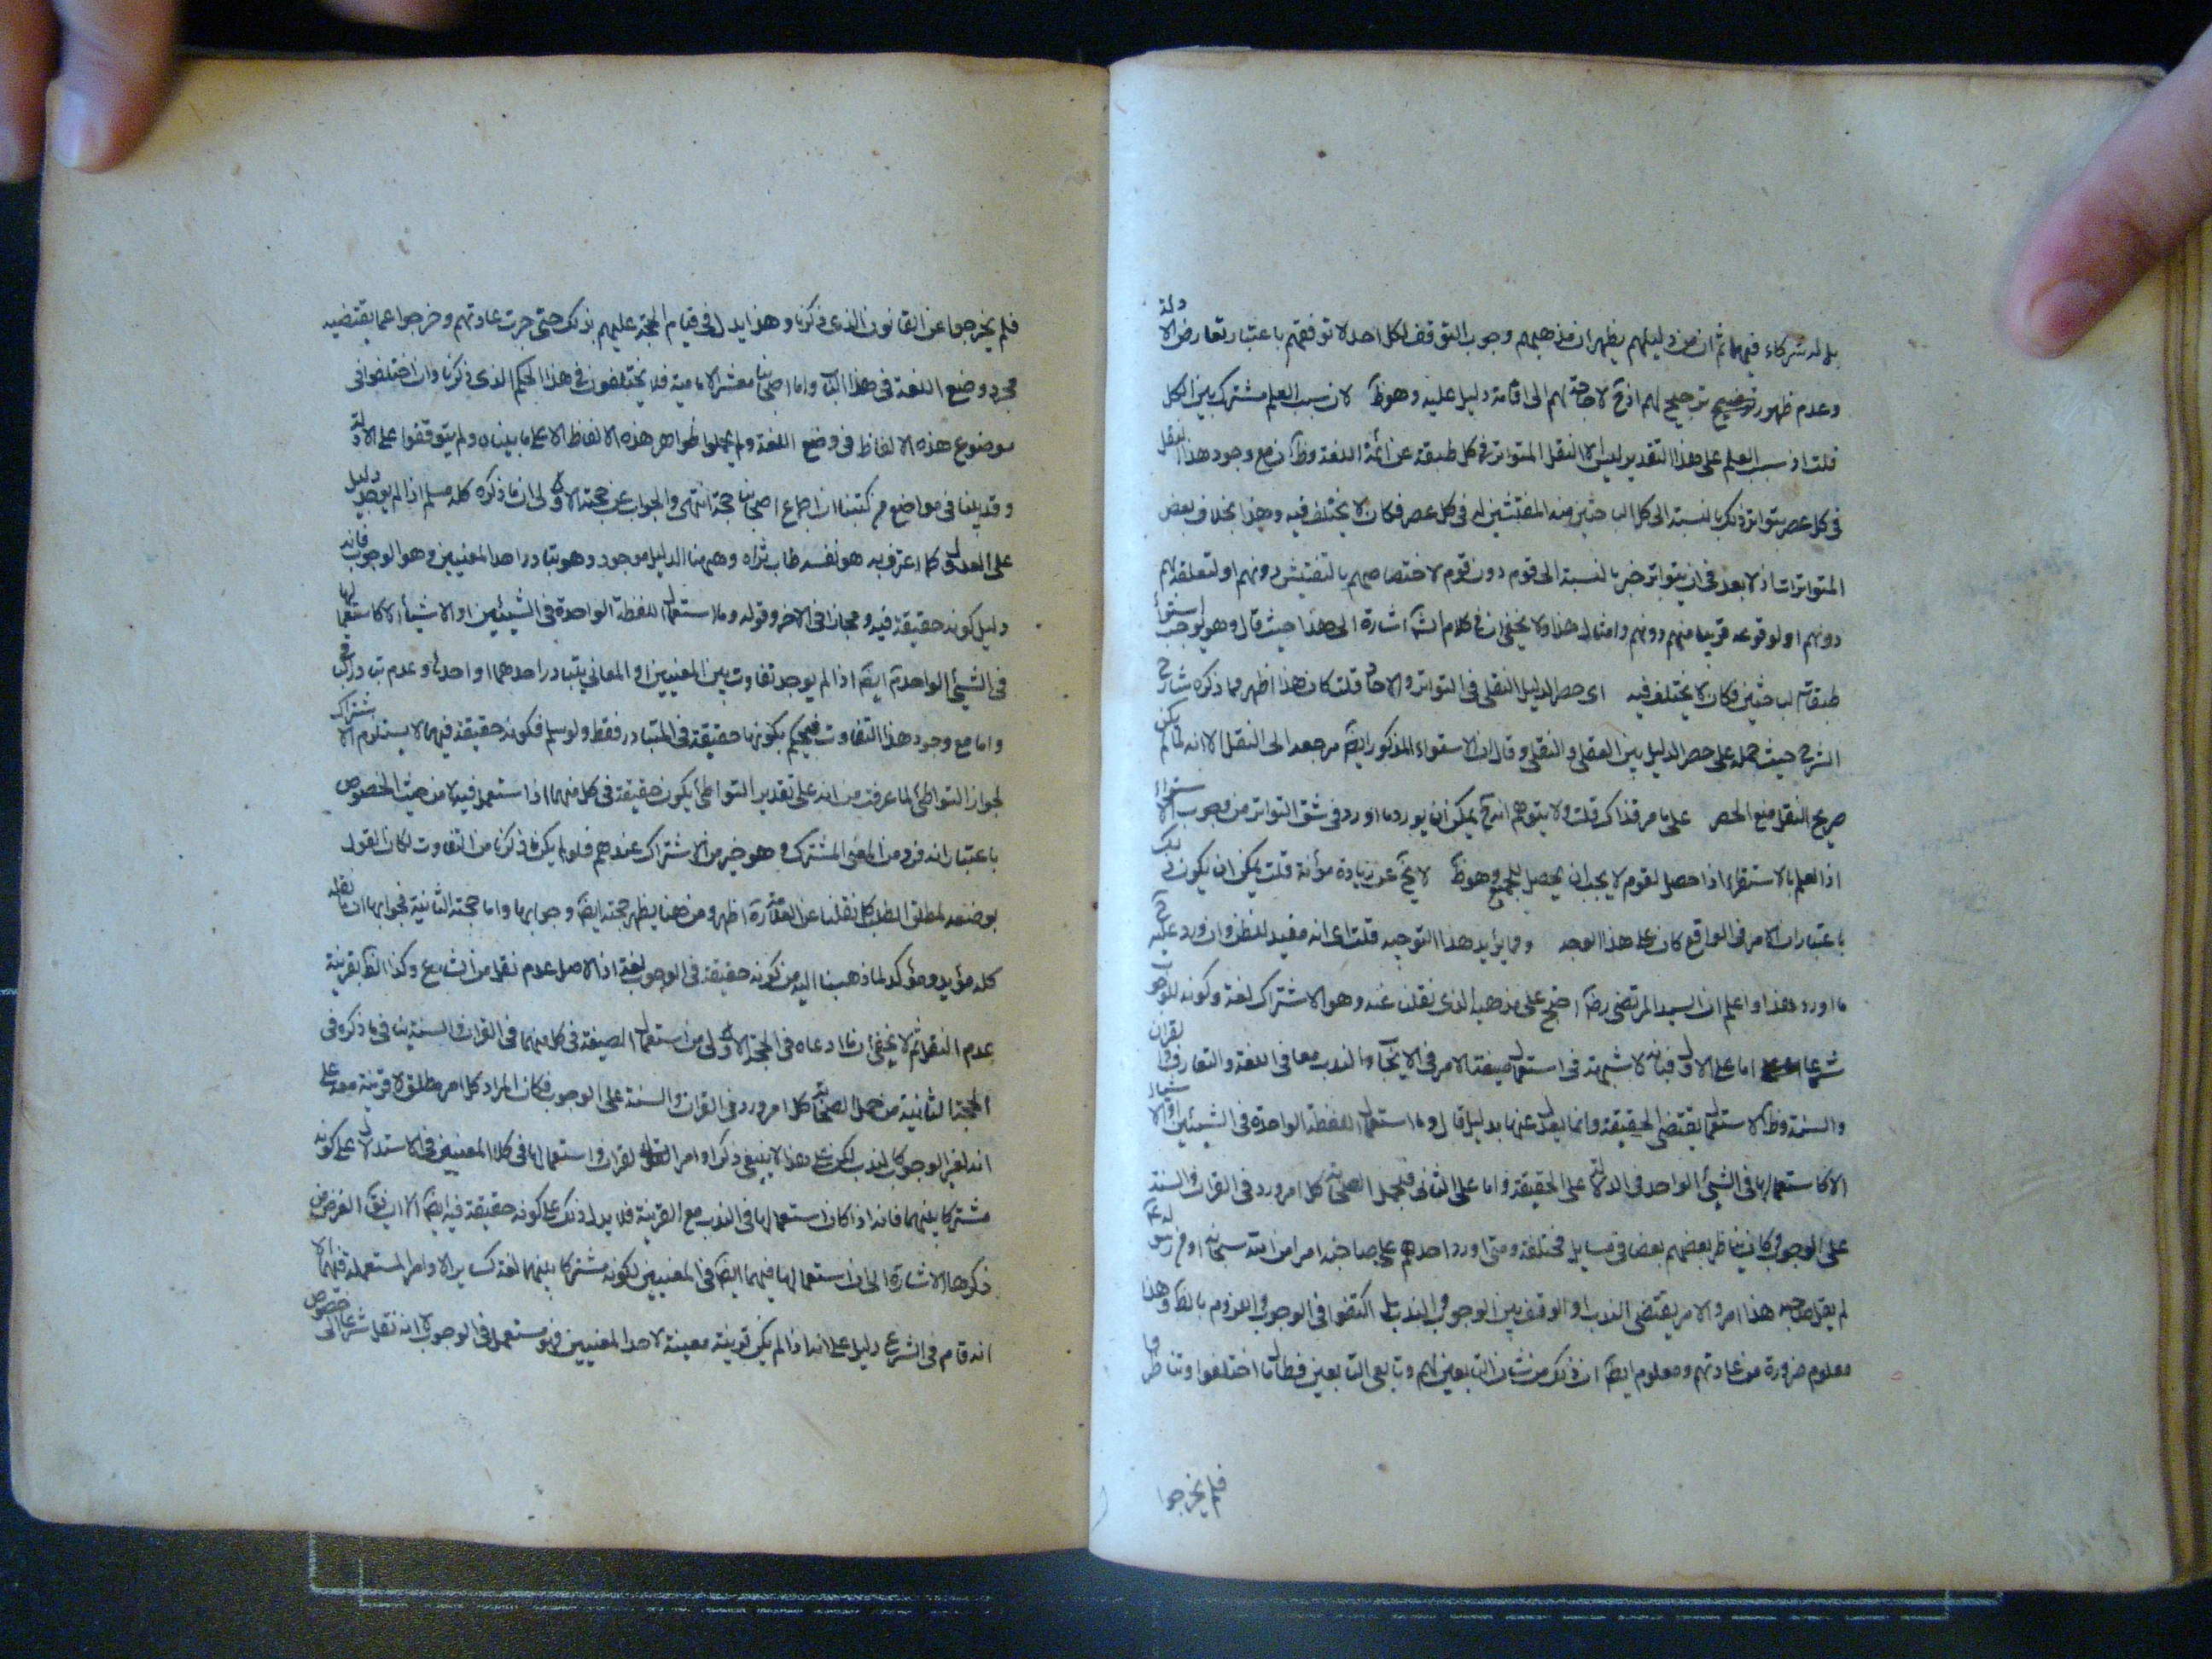 بل له شركاء فيهما ثم ان من دليلهم يظهر ان مذهبهم وجوب التوقف لكل احد لا توقفهم باعتبار تعارض الادلة
وعدم ظهور توضيح ترجيح لهم اذ ح لا حاجة لهم الى اقامة دليل عليه وهو ظ لان سبب العلم مشترك بين الكل
قلت اذ سبب العلم على هذا التقدير ليس الا النقل المتواتر في كل طبقة عن ائمة اللغة وظ ان مع وجود هذا النقل
في كل عصر يتواتر ذلك بالنسبة الى كل الباحثين منه المفتشين له في كل عصر فكان لا يختلف فيه وهذا بخلاف بعض
المتواترات اذ لا بعد في ان يتواتر خبر بالنسبة الى قوم دون قوم لاختصاصهم بالتفتيش دونهم او لتعلقه بهم
دونهم او لوقوعه قريبا منهم دونهم وامثال هذا ولا يخفى ان في كلام الش اشارة الى هذا حيث قال وهو يوجب استواء
طبقات الباحثين فكان لا يختلف فيه اى حصر الدليل النقلى في التواتر والاحاد قلت كان هذا اظهر مما ذكره شارح
الشرح حيث حمله على حصر الدليل بين العقلى والنقلى وقال ان الاستقراء المذكور ايضا مرجعه الى النقل الا انه لما لم يكن
صريح النقل منع الحصر على ما مر فذاك قلت ولا يتوهم انه ح يمكن ان يورد ما اورد في شق التواتر من وجوب الاستواء
اذ العلم بالاستقراء اذا حصل لقوم لا يجب ان يحصل للجميع وهو ظ لا يخ عن زيادة مؤنة قلت يمكن ان يكون ذلك
باعتبار ان الامر في الواقع كان على هذا الوجه ومما يؤيد هذا التوجيه قلت اى انه مفيد للظن وان ورد عليه
ما اورد هذا واعلم ان السيد المرتضى رض احتج على مذهبه الذى نقلنا عنه وهو الاشتراك لغة وكونه للوجوب
شرعا اما على الاول فبانه لا شبهة في استعمال صيغة الامر في الايجاب والندب معا في اللغة والتعارف والقران
والسنة وظ الاستعمال يقتضى الحقيقة وانما يعدل عنها بدليل قال وما استعمال اللفظة الواحدة في الشيئين او الاشياء
الا كاستعمالها في الشئ الواحد في الدلالة على الحقيقة واما على الثانى فبحمل الصحابة كل امر ورد في القران والسنة
على الوجوب وكان يناظر بعضهم بعضا في مسايل مختلفة ومتى اورد احدهم على صاحبه امرا من الله سبحانه او من رسوله
لم يقل صاحبه هذا امر والامر يقتضى الندب او الوقف بين الوجوب والندب بل اكتفوا في الوجوب واللزوم بالظ وهذا
معلوم ضرورة من عادتهم ومعلوم ايضا ان ذلك من شان التابعين لهم وتابعى التابعين فطال ما اختلفوا وتناظروا
فلم يخرجوا
فلم يخرجوا عن القانون الذى ذكرنا وهذا يدل في قيام الحجة عليهم بذلك حتى جرت عادتهم وخرجوا عما يقتضيه
مجرد وضع اللغة في هذا الباب واما اصحابنا معشر الامامية فلا يختلفون في هذا الحكم الذى ذكرنا وان اختلفوا في
موضوع هذه الالفاظ في وضع اللغة ولم يحملوا ظواهر هذه الالفاظ الا على ما بيناه ولم يتوقفوا على الادلة
وقد بينا في مواضع من كتبنا ان اجماع اصحابنا حجة انتهى والجواب عن حجة الاولى ان ما ذكره كله مسلم اذا لم يوجد دليل
على العدول كما اعترف به هو نفسه طاب ثراه وههنا الدليل موجود وهو تبادر احد المعنيين وهو الوجوب فانه
دليل كونه حقيقة فيه ومجازا في الاخر وقوله وما استعمال اللفظة الواحدة في الشيئين او الاشياء الا كاستعمالها
في الشئ الواحد تم ايضا اذا لم يوجد تفاوت بين المعنيين او المعانى بتبادر احدهما او احدها وعدم تبادر الباقي
واما مع وجود هذا التفاوت فيحكم بكونها حقيقة في المتبادر فقط ولو سلم فكونه حقيقة فيهما لا يستلزم الاشتراك
لجواز التواطئ لما عرفت من انه على تقدير التواطئ يكون حقيقة في كل منهما اذا استعمل فيه لا من حيث الخصوص
باعتبار انه فرد من المعنى المشترك وهو خير من الاشتراك عندهم فلو لم يكن ما ذكرنا من التفاوت لكان القول
بوضعه لمطلق الطلب كما نقلنا عن العلامة اظهر ومن هنا يظهر حجته ايضا وجوابها واما حجته الثانية فجوابها ان ما نقله
كله مؤيد ومؤكد لما ذهبنا اليه من كونه حقيقة في الوجوب لغة اذ الاصل عدم نقل من الشارع وكذا الظ بقرينة
عدم النقل ثم لا يخفى ان ما ادعاه في الحجة الاولى من استعمال الصيغة في كل منهما في القران والسنة ينافي ما ذكره في
الحجة الثانية من حمل الصحابة كل امر ورد في القران والسنة على الوجوب فكان المراد كل امر مطلق لا قرينة معه على
انه لغير الوجوب كالندب لكن على هذا لا ينبغى ذكر اوامر القران واستعمالها في كلا المعنيين في الاستدلال على كونه
مشتركا بينهما فانه اذا كان استعمالها في الندب مع القرينة فلا يدل ذلك على كونه حقيقة فيه ايضا الا ان يق الغرض من
ذكرها الاشارة الى ان استعمالها فيهما ايضا في المعنيين لكونه مشتركا بينهما لغة كساير الاوامر المستعملة فيهما الا
انه قام في الشرع دليل على انه اذا لم يكن قرينة معينة لاحد المعنيين فهو مستعمل في الوجوب لا انه نقل شرعا الى خصوص